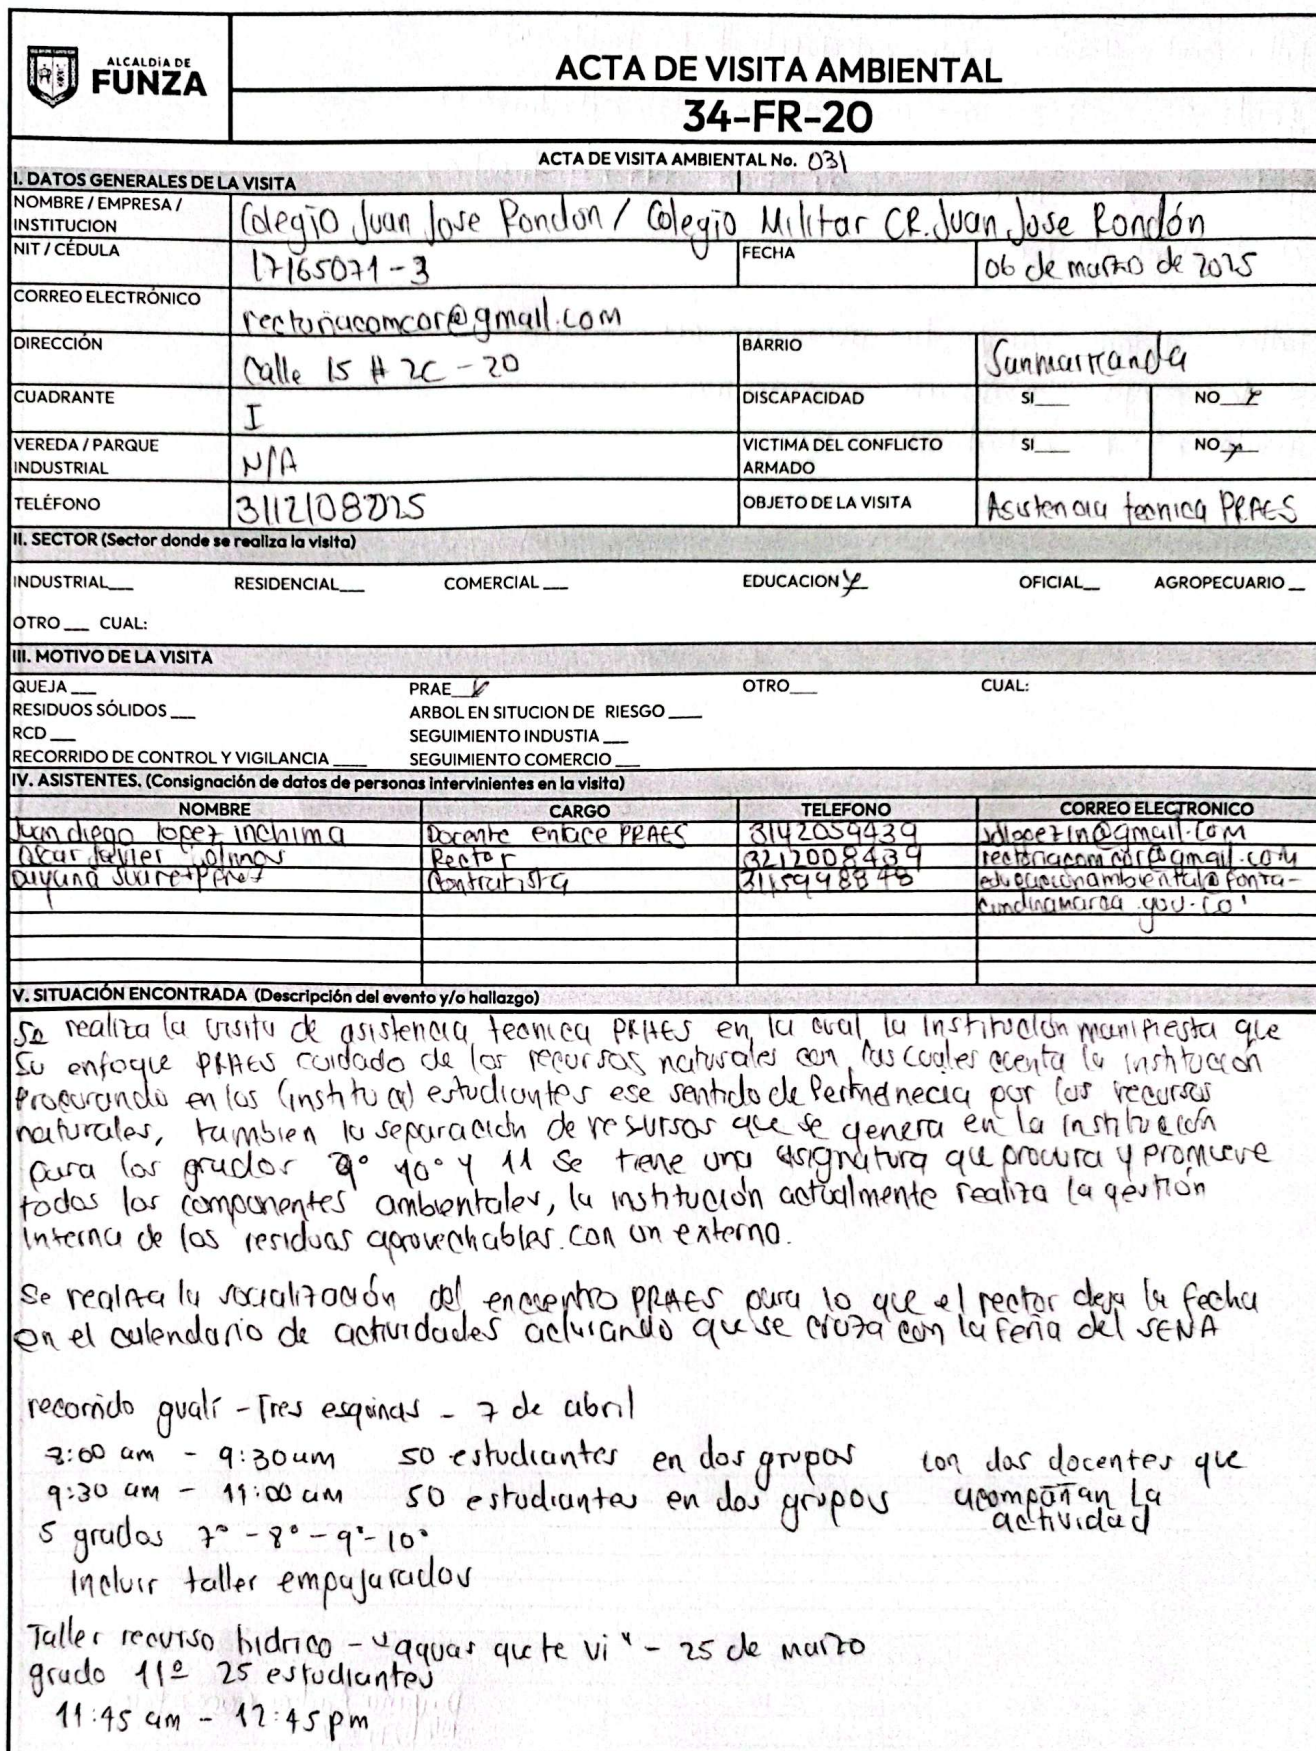 ALCALDÍA DE
FUNZA
ACTA DE VISITA AMBIENTAL
34-FR-20
ACTA DE VISITA AMBIENTAL No. 031
I. DATOS GENERALES DE LA VISITA
NOMBRE / EMPRESA / INSTITUCION Colegio Juan Jose Rondon / Colegio Militar CR. Juan Jose Rondón
NIT / CÉDULA 17165071-3 FECHA 06 de marzo de 2025
CORREO ELECTRÓNICO rectoriacomcor@gmail.com
DIRECCIÓN Calle 15 # 2C - 20 BARRIO
CUADRANTE I DISCAPACIDAD SI___ NO_x_
VEREDA / PARQUE INDUSTRIAL N/A VICTIMA DEL CONFLICTO ARMADO SI___ NO_x_
TELÉFONO 3112108225 OBJETO DE LA VISITA Asistencia tecnica PRAES
II. SECTOR (Sector donde se realiza la visita)
INDUSTRIAL___ RESIDENCIAL___ COMERCIAL ___ EDUCACION x OFICIAL__ AGROPECUARIO __
OTRO ___ CUAL:
III. MOTIVO DE LA VISITA
QUEJA ___ PRAE_x_ OTRO___ CUAL:
RESIDUOS SÓLIDOS ___ ARBOL EN SITUCION DE RIESGO ____
RCD ___ SEGUIMIENTO INDUSTIA ___
RECORRIDO DE CONTROL Y VIGILANCIA ____ SEGUIMIENTO COMERCIO ___
IV. ASISTENTES. (Consignación de datos de personas intervinientes en la visita)
NOMBRE CARGO TELEFONO CORREO ELECTRONICO
Juan diego lopez inchima Docente enlace PRAES 3142059439 jdlopezin@gmail.com
Oscar Javier Rector 3212008439 rectoriacomcor@gmail.com
Dayana Suarez Perez Contratista 3115998878 educacionambiental@funza-
cundinamarca.gov.co
V. SITUACIÓN ENCONTRADA (Descripción del evento y/o hallazgo)
Se realiza la visita de asistencia tecnica PRAES en la cual la institución manifiesta que
su enfoque PRAES cuidado de los recursos naturales con los cuales cuenta la institución
procurando en los (institucu) estudiantes ese sentido de Pertenecia por los recursos
naturales, tambien la separación de resursos que se genera en la institución
para los grados 9° 10° y 11 se tiene una asignatura que procura y promueve
todos los componentes ambientales, la institución actualmente realiza la gestión
interna de los residuos aprovechables con un externo.
Se realiza la socialización del encuentro PRAES para lo que el rector deja la fecha
en el calendario de actividades aclarando que se cruza con la feria del SENA
recorrido gualí - Tres esquinas - 7 de abril
8:00 am - 9:30 am 50 estudiantes en dos grupos con dos docentes que
9:30 am - 11:00 am 50 estudiantes en dos grupos acompañan la
actividad
5 grados 7° - 8° - 9° - 10°
incluir taller empajarados
Taller recurso hidrico - "aguas que te vi" - 25 de marzo
grado 11º 25 estudiantes
11:45 am - 12:45 pm